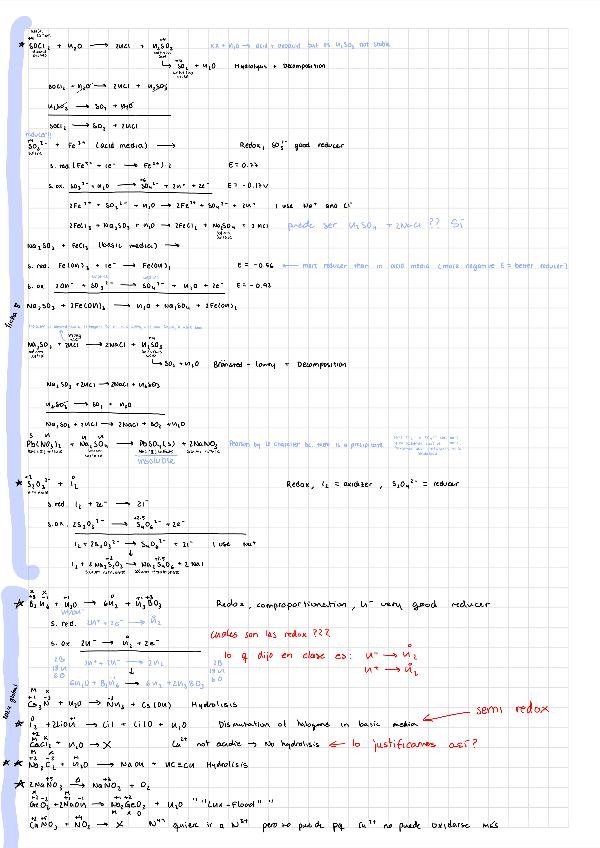 SOCl₂ + H₂O → 2HCl + H₂SO₃
SO₂ + H₂O Hydrolysis + Decomposition
SOCl₂ + H₂O → 2HCl + H₂SO₃
H₂SO₃ → SO₂ + H₂O
SOCl₂ → SO₂ + 2HCl
reducer!!
SO₃²⁻ + Fe³⁺ (acid media) → Redox, SO₃²⁻ good reducer
s. red. (Fe³⁺ + 1e⁻ → Fe²⁺)·2 E = 0.77
s. ox. SO₃²⁻ + H₂O → SO₄²⁻ + 2H⁺ + 2e⁻ E = -0.17V
2Fe³⁺ + SO₃²⁻ + H₂O → 2Fe²⁺ + SO₄²⁻ + 2H⁺ I use Na⁺ and Cl⁻
2FeCl₃ + Na₂SO₃ + H₂O → 2FeCl₂ + Na₂SO₄ + 2HCl puede ser H₂SO₄ + 2NaCl ?? Sí
Na₂SO₃ + FeCl₃ (basic media) →
s. red. Fe(OH)₃ + 1e⁻ → Fe(OH)₂ E = -0.56 ← more reducer than in acid media (more negative E = better reducer)
s. ox 2OH⁻ + SO₃²⁻ → SO₄²⁻ + H₂O + 2e⁻ E = -0.93
Na₂SO₃ + 2Fe(OH)₃ → H₂O + Na₂SO₄ + 2Fe(OH)₂
Na₂SO₃ + 2HCl → 2NaCl + H₂SO₃
SO₂ + H₂O Brönsted-Lowry + Decomposition
Na₂SO₃ + 2HCl → 2NaCl + H₂SO₃
H₂SO₃ → SO₂ + H₂O
Na₂SO₃ + 2HCl → 2NaCl + SO₂ + H₂O
Pb(NO₃)₂ + Na₂SO₄ → PbSO₄(s) + 2NaNO₃ Reaction by Le Chatelier bc. there is a precipitate
insoluble
S₂O₃²⁻ + I₂ Redox, I₂ = oxidizer, S₂O₃²⁻ = reducer
s. red. I₂ + 2e⁻ → 2I⁻
s. ox. 2S₂O₃²⁻ → S₄O₆²⁻ + 2e⁻
I₂ + 2S₂O₃²⁻ → S₄O₆²⁻ + 2I⁻ I use Na⁺
I₂ + 2Na₂S₂O₃ → Na₂S₄O₆ + 2NaI
B₂H₆ + H₂O → 6H₂ + H₃BO₃ Redox, comproportionation, H⁻ very good reducer
s. red. 2H⁺ + 2e⁻ → H₂
cuales son las redox ???
s. ox 2H⁻ → H₂ + 2e⁻
lo q dijo en clase es: H⁻ → H₂
2H⁺ + 2H⁻ → 2H₂
H⁺ → H₂
6H₂O + B₂H₆ → 6H₂ + 2H₃BO₃
Cs₃N + H₂O → NH₃ + Cs(OH) Hydrolisis
semi redox
I₂ + 2LiOH → LiI + LiIO + H₂O Dismutation of halogens in basic media
CaCl₂ + H₂O → X Ca²⁺ not acidic → No hydrolisis ← lo justificamos así?
Na₂C₂ + H₂O → NaOH + HC≡CH Hydrolisis
2NaNO₃ → NaNO₂ + O₂
GeO₂ + 2NaOH → Na₂GeO₃ + H₂O ""Lux-Flood""
CaNO₃ + NO₂ → X N⁴⁺ quiere ir a N³⁺ pero no puede pq Ca²⁺ no puede oxidarse más